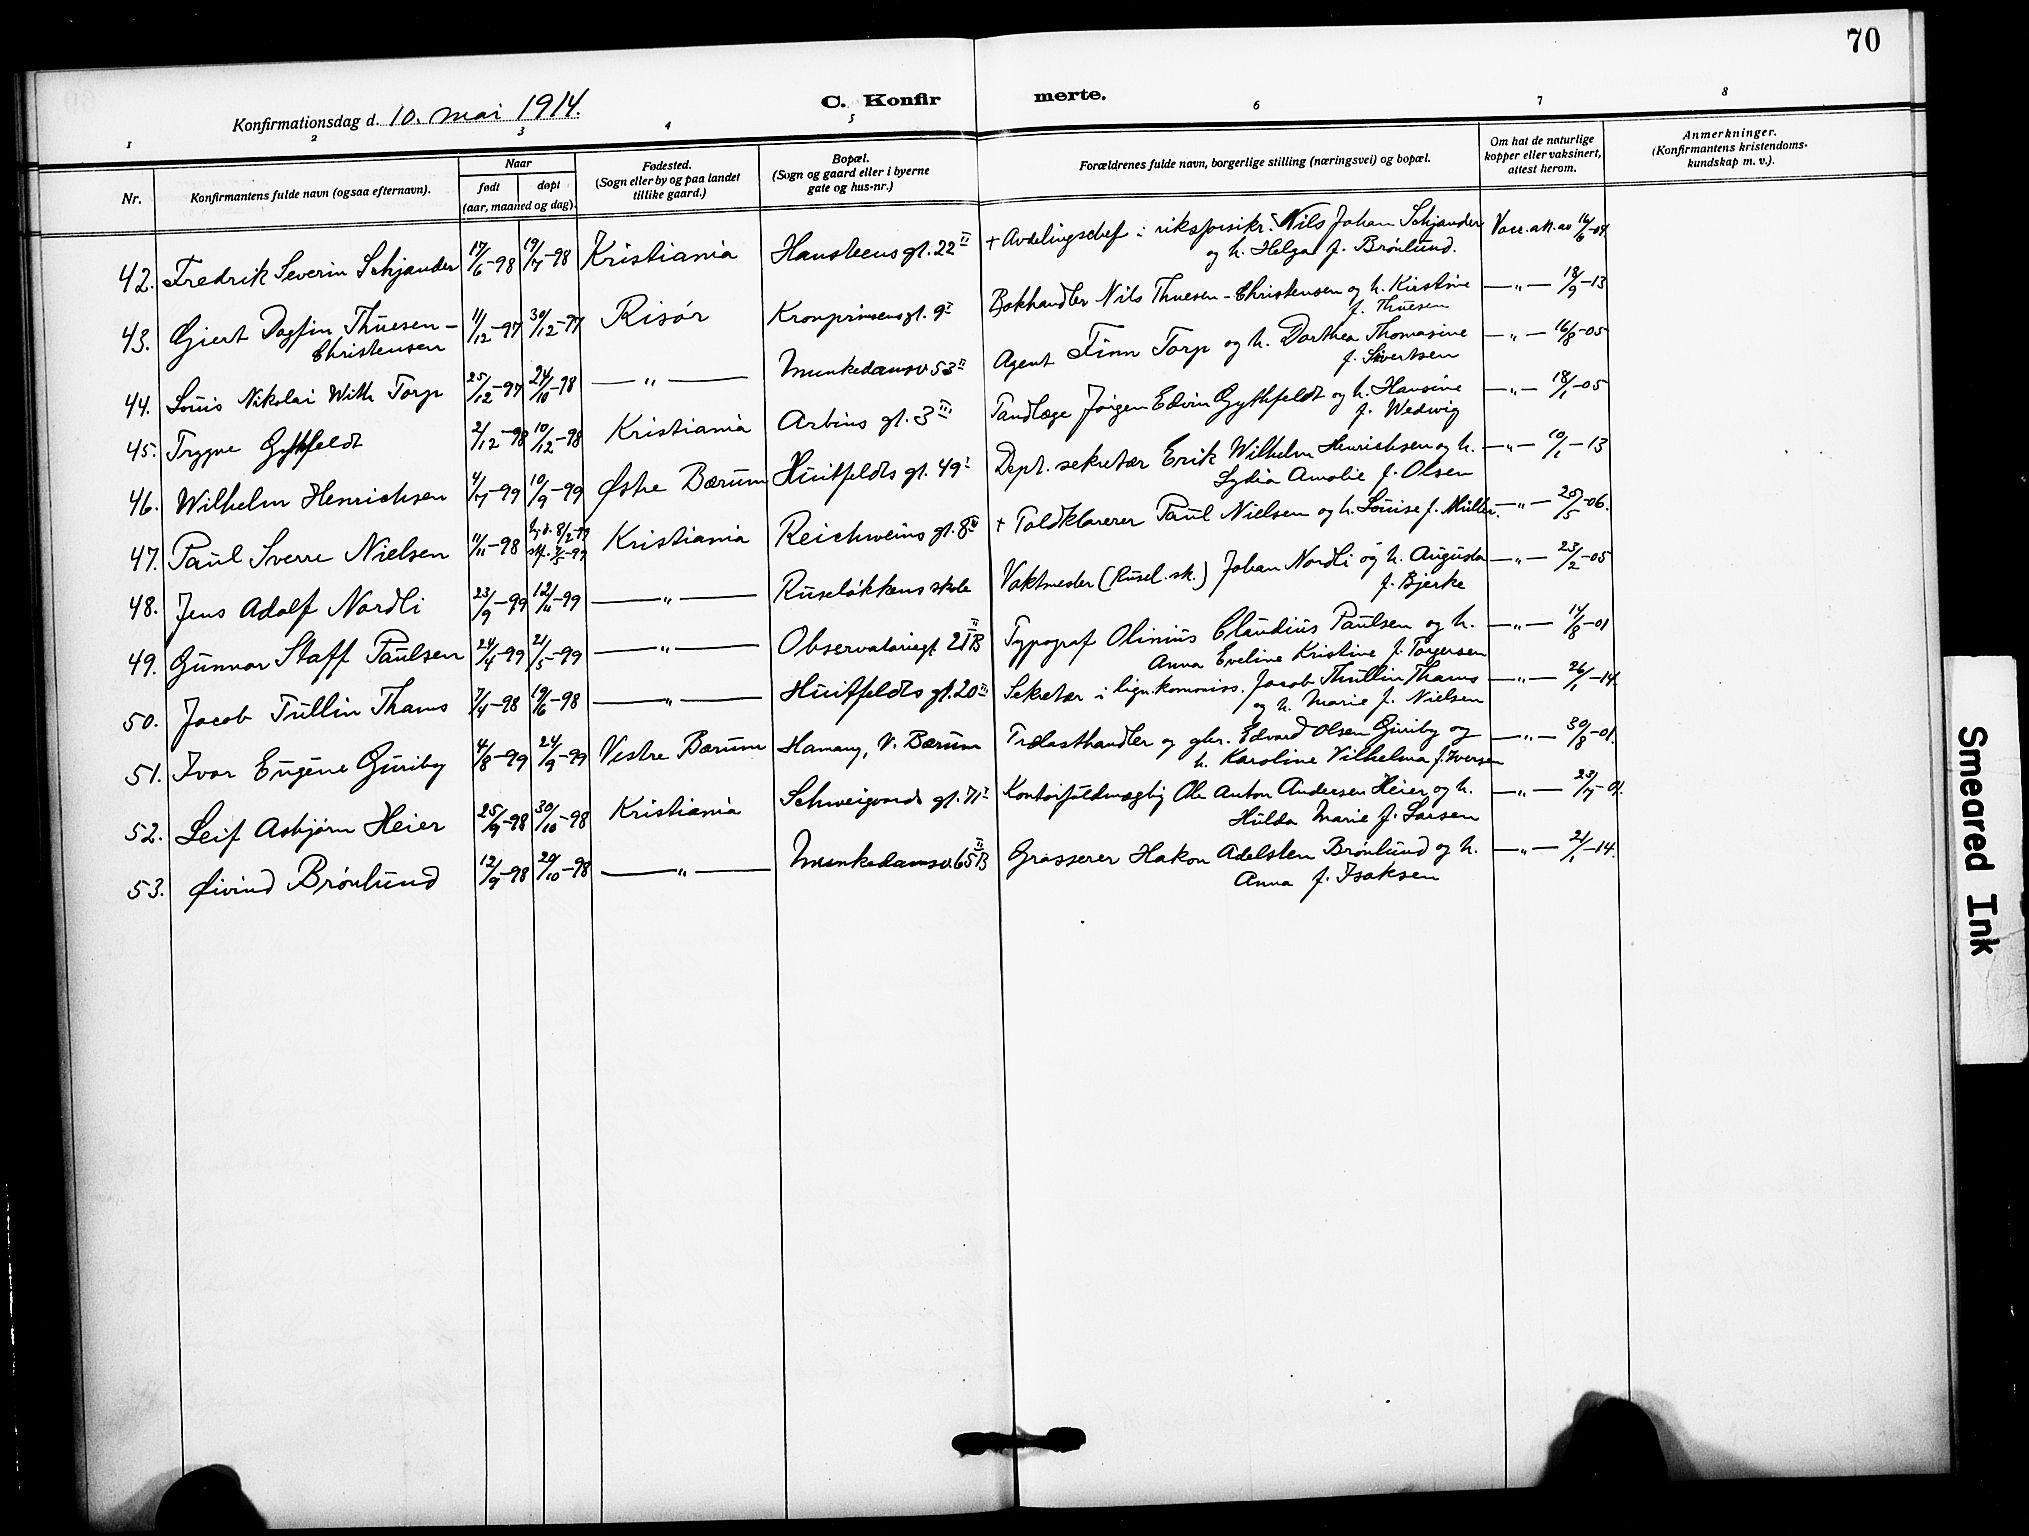 70
Konfirmationsdag d. 10. mai 1914.
C. Konfir merte.
1 2 3 4 5 6 7 8
Nr.
Konfirmantens fulde navn (ogsaa efternavn).
Naar
født døpt
(aar, maaned og dag).
Fødested.
(Sogn eller by og paa landet
tillike gaard.)
Bopæl.
(Sogn og gaard eller i byerne
gate og hus-nr.)
Forældrenes fulde navn, borgerlige stilling (næringsvei) og bopæl.
Om hat de naturlige
kopper eller vaksinert,
attest herom.
Anmerkninger.
(Konfirmantens kristendoms-
kundskap m. v.).
42. Fredrik Severin Schjander 17/6-98 19/7-98 Kristiania Hansteens gt. 22 II + Avdelingschef i Nils Johan Schjander Vacc. att. av 16/6-04
og h. Helga f. Brönlund.
43. Gjert Dagfin Thuesen- 11/12-97 30/12-97 Risør Kronprinsens gt. 9 I Bokhandler Nils Thuesen-Christensen og h. Kirstine —"— 18/9-13
Christensen f. Thuesen
44. Louis Nikolai With Torp 25/12-97 24/10-98 —"— Munkedamsv. 53 II Agent Finn Torp og h. Dorthea Thomasine —"— 16/8-05
f. Sivertsen
45. Trygve Gythfeldt 2/12-98 10/12-98 Kristiania Arbins gt. 3 III Tandlæge Jörgen Edvin Gythfeldt og h. Hansine —"— 18/1-05
f. Wedwig
46. Wilhelm Henrichsen 4/7-99 10/9-99 Østre Bærum Huitfeldts gt. 49 I Dept. sekretær Erik Wilhelm Henrichsen og h. —"— 10/1-13
Lydia Amalie f. Olsen
47. Paul Sverre Nielsen 11/11-98 hj.d. 8/2-99 Kristiania Reichweins gt. 8 IV + Toldklarerer Paul Nielsen og h. Louise f. Müller. —"— 25/5-06.
stf. 7/5-99
48. Jens Adolf Nordli 23/9-99 12/11-99 —"— Ruselökkens skole Vaktmester (Rusel. sk.) Johan Nordli og h. Augusta —"— 23/2-05
f. Bjerke
49. Gunnar Staff Paulsen 24/4-99 21/5-99 —"— Observatoriegt. 21 B II Typograf Olinius Claudius Paulsen og h. —"— 14/8-01
Anna Eveline Kristine f. Torgersen
50. Jacob Tullin Thams 7/4-98 19/6-98 —"— Huitfeldts gt. 20 II Sekretær i lign.kommiss. Jacob Thullin Thams —"— 26/1-14.
og h. Marie f. Nielsen
51. Ivar Eugéne Guriby 4/8-99 24/9-99 Vestre Bærum Hamang, V. Bærum Trælasthandler og gbr. Edvard Olsen Guriby og —"— 30/8-01.
h. Karoline Vilhelma f. Iversen
52. Leif Asbjørn Heier 25/9-98 30/10-98 Kristiania Schweigaards gt. 71 I Kontorfuldmægtig Ole Anton Andersen Heier og h. —"— 23/7-01.
Hilda Marie f. Larsen
53. Øivind Brönlund 12/9-98 20/10-98 —"— Munkedamsv. 65 B II Grosserer Hakon Adelsten Brönlund og h. —"— 21/1-14.
Anna f. Isaksen
Smeared Ink